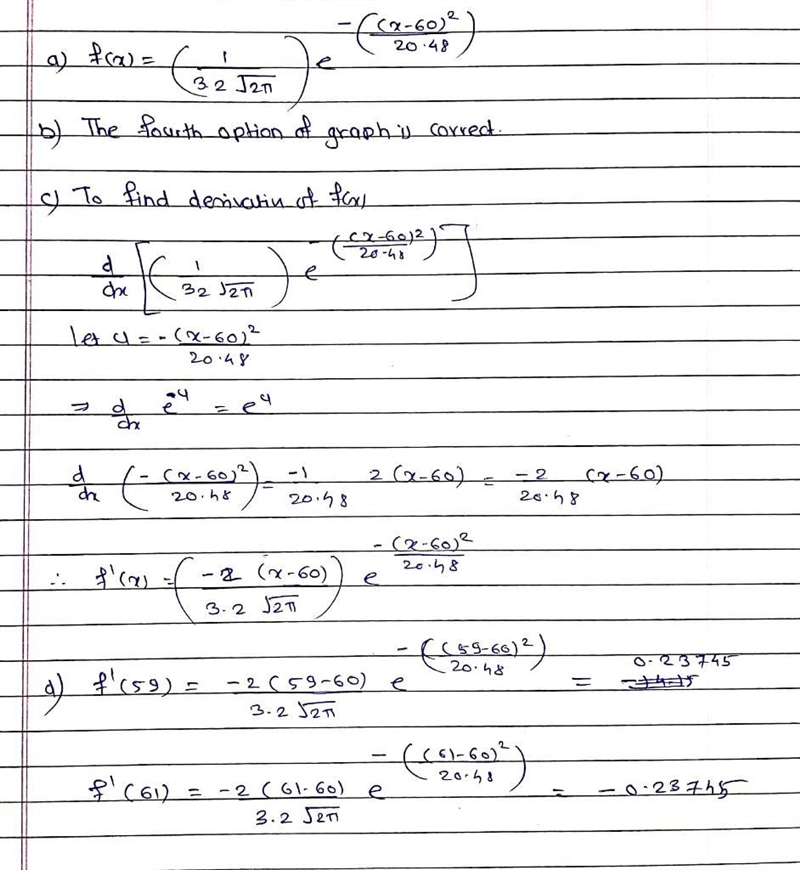 a) f(x) = (1 / 3.2 √2π) e^-((x-60)² / 20.48)
b) The fourth option of graph is correct.
c) To find derivativ of f(x)
d/dx [(1 / 32 √2π) e^-((x-60)² / 20.48)]
let u = -(x-60)² / 20.48
⇒ d/dx e^-u = e^u
d/dx (-(x-60)² / 20.48) = -1 / 20.48 2(x-60) = -2 / 20.48 (x-60)
∴ f'(x) = (-2 (x-60) / 3.2 √2π) e^-(x-60)² / 20.48
d) f'(59) = -2(59-60) / 3.2 √2π e^-((59-60)² / 20.48) = 0.23745
f'(61) = -2(61-60) / 3.2 √2π e^-((61-60)² / 20.48) = -0.23745